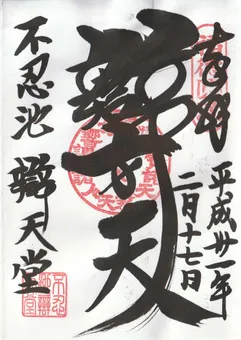 奉拝
平成丗一年
二月十七日
辯才天
不忍池 辯天堂